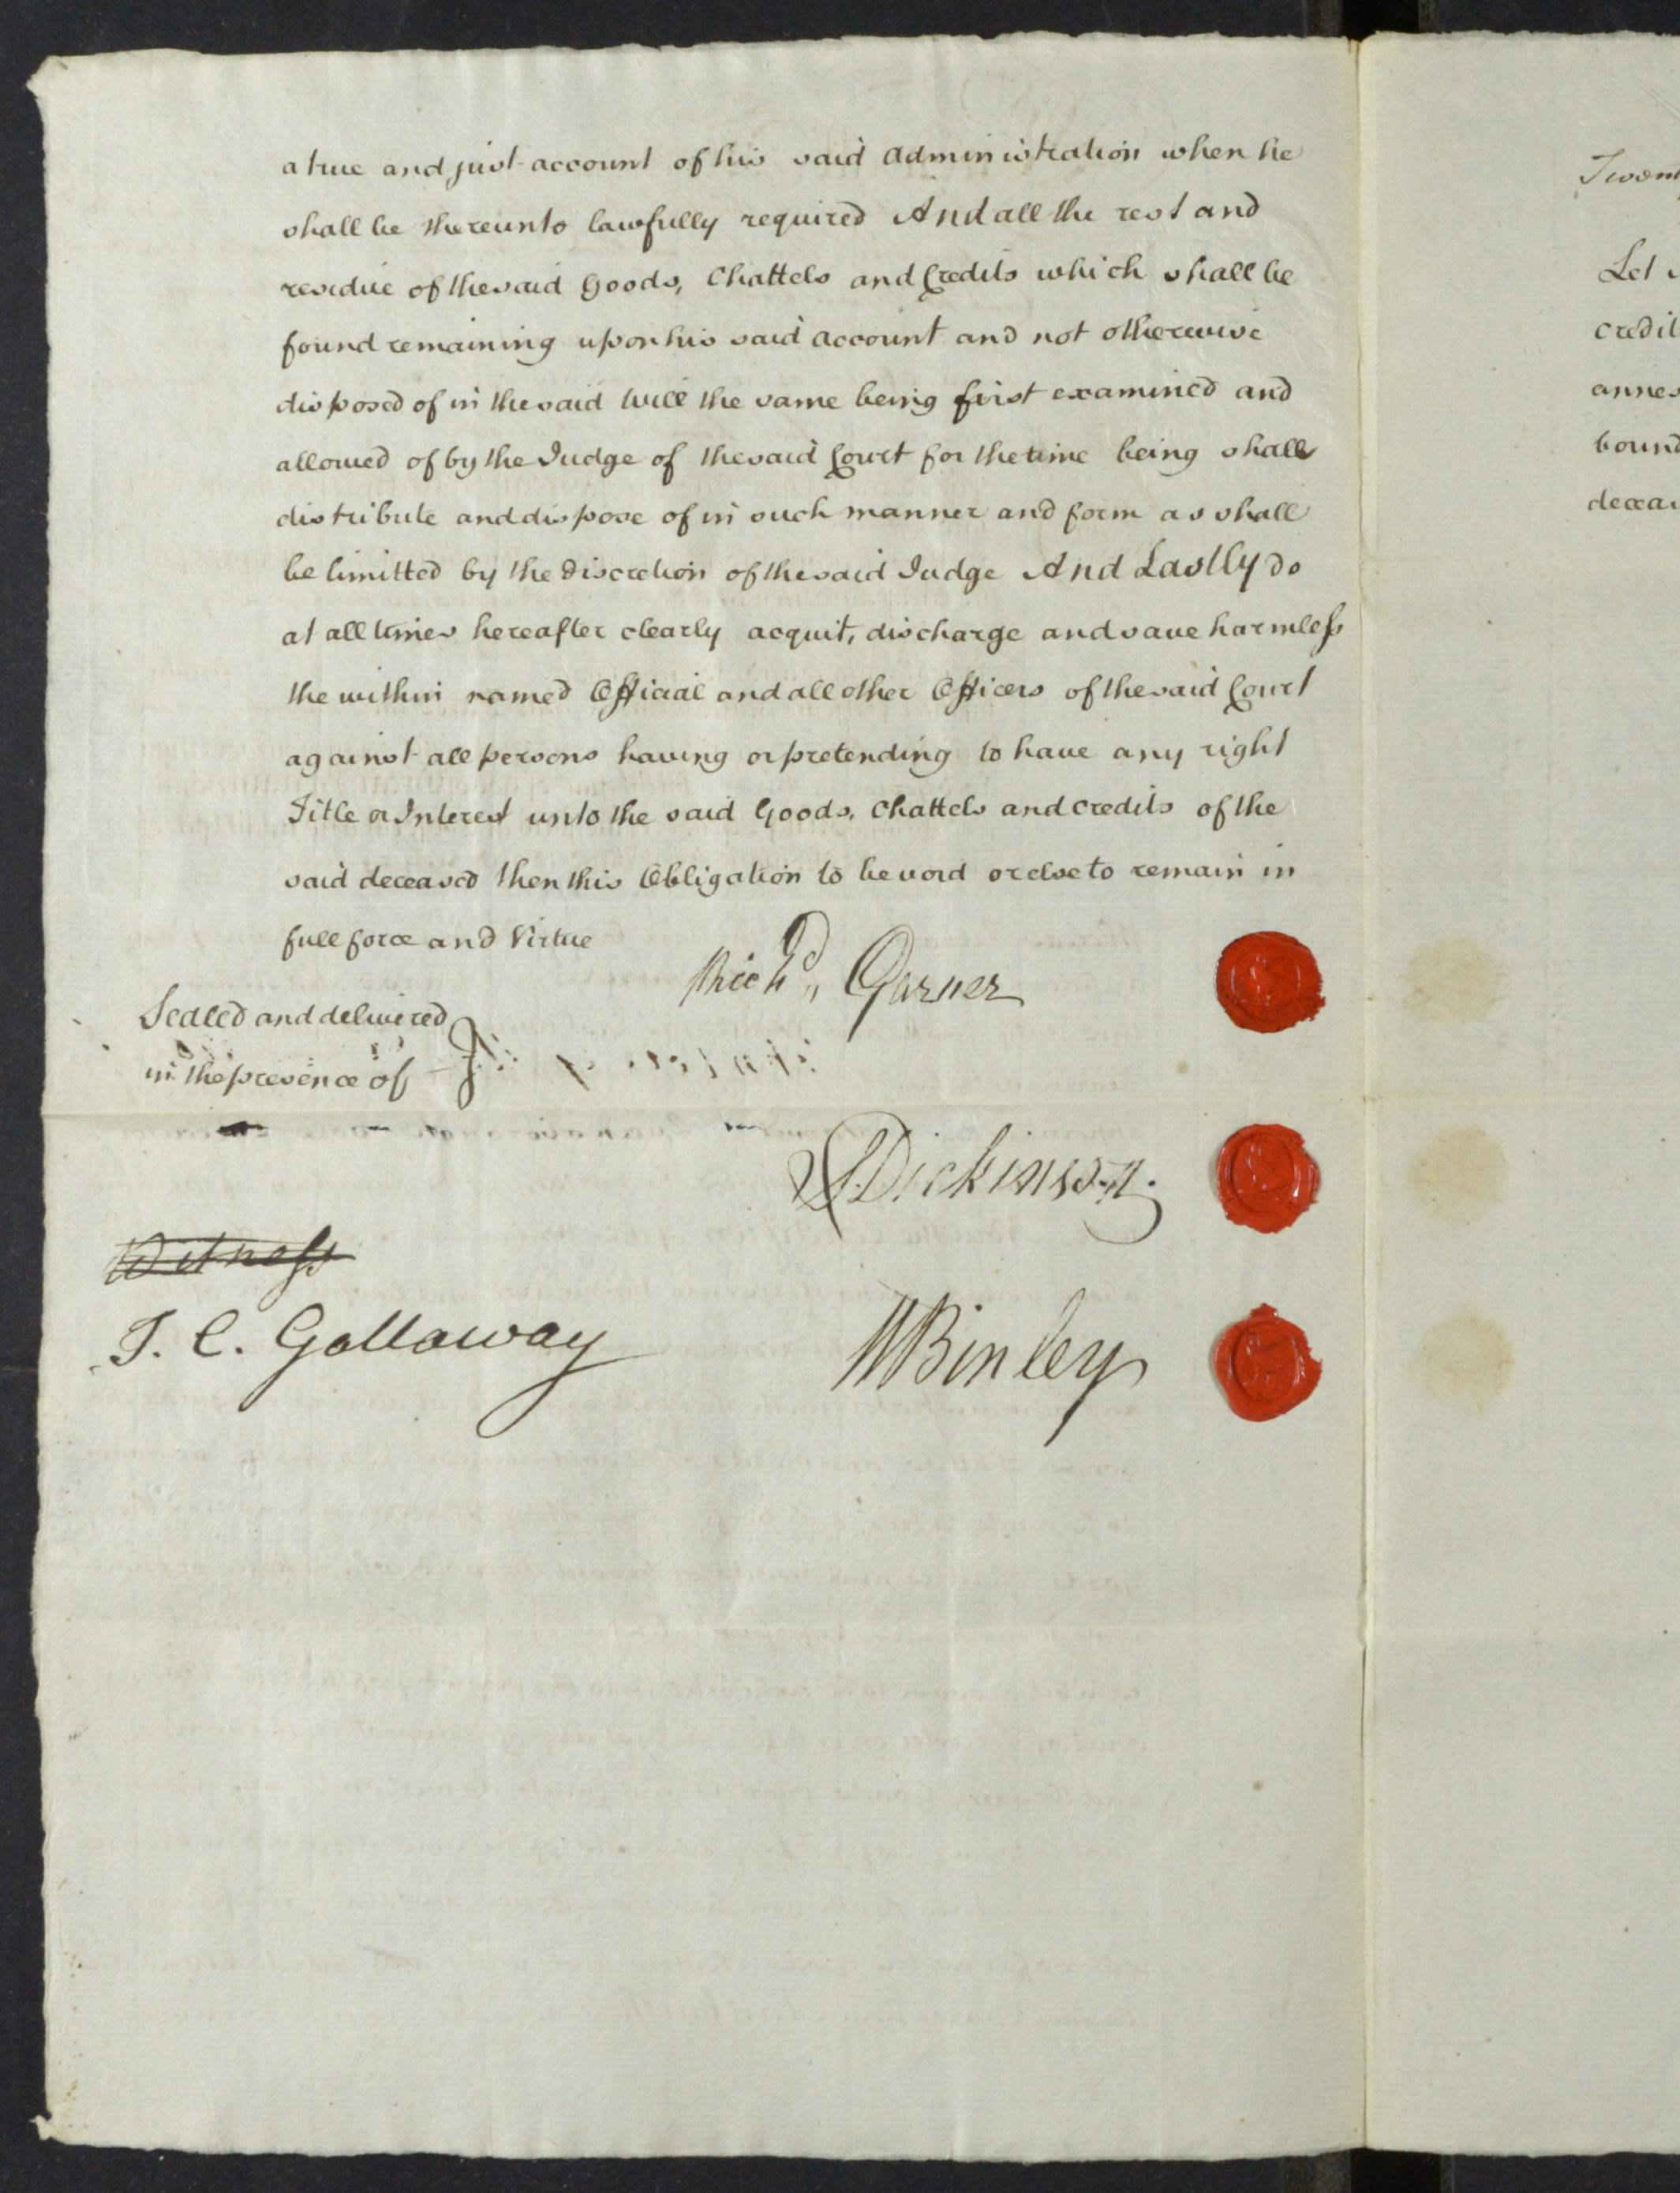 a true and just account of his said Administration when he
shall be thereunto lawfully required And all the rest and
residue of the said Goods, Chattels and Credits which shall be
found remaining upon his said Account and not otherwise
disposed of in the said Will the same being first examined and
allowed of by the Judge of the said Court for the time being shall
distribute and dispose of in such manner and form as shall
be limitted by the Discretion of the said Judge And Lastly do
at all times hereafter clearly acquit, discharge and save harmless
the within named Official and all other Officers of the said Court
against all persons having or pretending to have any right
Title or Interest unto the said Goods, Chattels and Credits of the
said deceased then this Obligation to be void or else to remain in
full force and Virtue
Richd,, Garner
Sealed and delivered
in the presence of
Dickinson
Witness
T. C. Gallaway
WBinley
Let
credit
bound